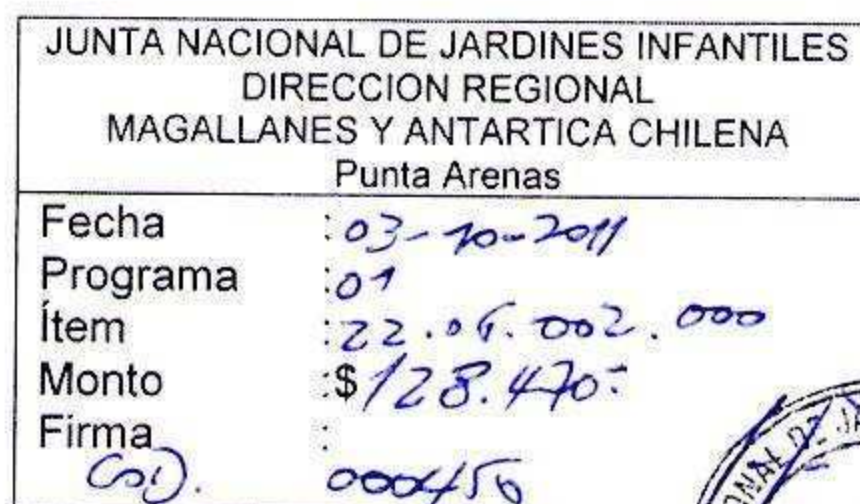 JUNTA NACIONAL DE JARDINES INFANTILES
DIRECCION REGIONAL
MAGALLANES Y ANTARTICA CHILENA
Punta Arenas
Fecha : 03-10-2011
Programa : 01
Ítem : 22.06.002.000
Monto :$ 128.470.-
Firma :
Cod. 000456